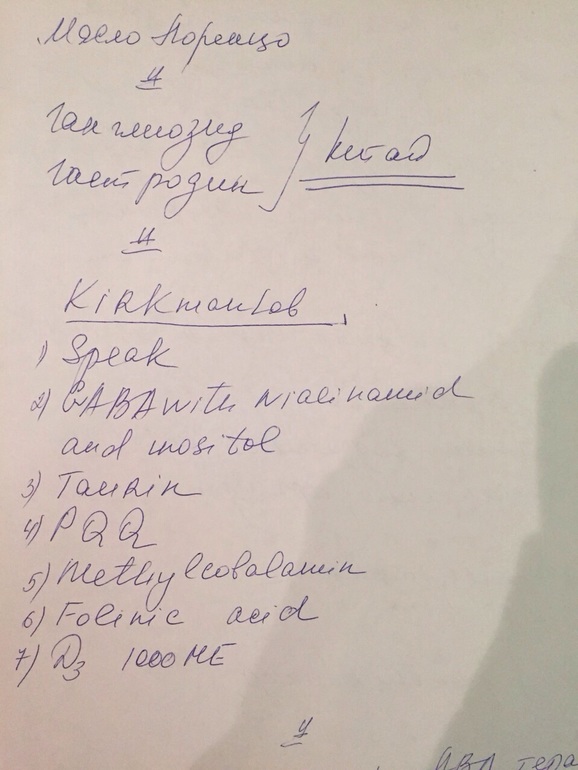 Масло Лоренцо
и
Ганглиозид
Гастродин } Китай
и
KiRKmanLab
1) Speak
2) GABA with Niacinamid
and inositol
3) Taurin
4) PQQ
5) Methylcobalamin
6) Folinic acid
7) D3 1000 МЕ
и
АВА тера